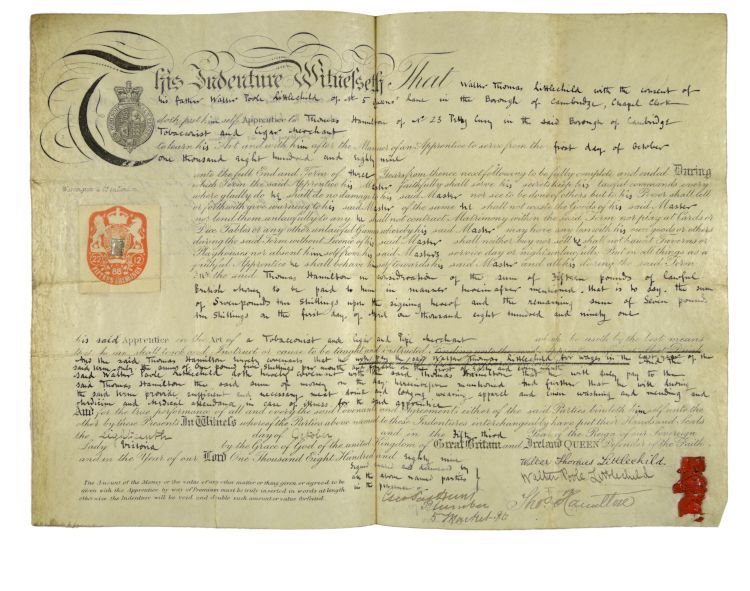 This Indenture Witnesseth That Walter Thomas Littlechild with the consent of
his father Walter Poole Littlechild of No 5 Queens' Lane in the Borough of Cambridge, Chapel Clerk
doth put himself Apprentice to Thomas Hamilton of No 23 Petty Cury in the said Borough of Cambridge
Tobacconist and Cigar Merchant
to learn his Art and with him after the Manner of an Apprentice to serve from the first day of October
one thousand eight hundred and eighty nine
unto the full End and Term of three Years from thence next following to be fully complete and ended During
which Term the said Apprentice his Master faithfully shall serve his secrets keep his lawful commands every
where gladly do he shall do no damage to his said Master nor see to be done of others but to his Power shall tell
or forthwith give warning to his said Master of the same he shall not waste the Goods of his said Master
nor lend them unlawfully to any he shall not contract Matrimony within the said Term nor play at Cards or
Dice Tables or any other unlawful Games whereby his said Master may have any loss with his own goods or others
during the said Term without Licence of his said Master shall neither buy nor sell he shall not haunt Taverns or
Playhouses nor absent himself from his said Master's service day or night unlawfully But in all things as a
faithful Apprentice he shall behave towards his said Master and all his during the said Term
And the said Thomas Hamilton in consideration of the sum of Fifteen pounds of lawful
British money to be paid to him in manner hereinafter mentioned, that is to say, the sum
of Seven pounds ten shillings upon the signing hereof and the remaining sum of Seven pounds
ten shillings on the first day of April one thousand eight hundred and ninety one
his said Apprentice in the Art of a Tobacconist and Cigar and Pipe merchant which he useth by the best means
that he can shall teach and Instruct or cause to be taught and instructed
And the said Thomas Hamilton hereby covenants that he will pay the said Walter Thomas Littlechild for wages in the last year of the
said term only the sum of One pound five shillings per month
said Walter Poole Littlechild doth hereby covenant with the said Thomas Hamilton that he will duly pay to the
said Thomas Hamilton the said sum of money on the day hereinbefore mentioned And further that he will during
the said term provide sufficient and necessary meat drink and lodging wearing apparel and linen washing and mending and
medicine and medical attendance in case of illness for the said apprentice
And for the true performance of all and every the said Covenants and Agreements either of the said Parties bindeth himself unto the
other by these Presents In Witness whereof the Parties above named to these Indentures interchangeably have put their Hands and Seals
the Eighteenth day of October and in the Fifty third Year of the Reign of our Sovereign
Lady Victoria by the Grace of God of the united Kingdom of Great Britain and Ireland QUEEN Defender of the Faith
and in the Year of our Lord One Thousand Eight Hundred and eighty nine
Signed sealed and delivered by
the above named parties
in the presence of
Walter Thomas Littlechild
Walter Poole Littlechild
Thos. Hamilton
The Amount of the Money or the value of any other matter or thing given or agreed to be
given with the Apprentice by way of Premium must be truly inserted in words at length
otherwise the Indenture will be void and double such amount or value forfeited.
Waterlow & Sons Limited London
22 12
88